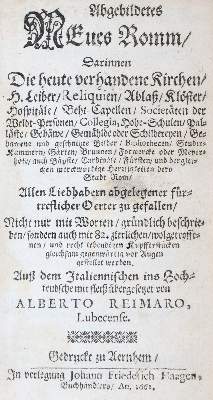 Abgebildetes
Neues Romm/
Darinnen
Die heute verhandene Kirchen/
H. Leiber/ Reliquien/ Ablaß/ Klöster/
Hospitäle/ Beht-Capellen/ Societäten der
Welt-Personen/ Collegia/ Hohe-Schulen/ Pal-
läste/ Gebäwe/ Gemählde oder Schildereyen/ Ge-
hawene und geschnitzte Bilder/ Bibliothecen/ Studier-
Kammern/ Gärten/ Brunnen/ Forwercke oder Meyer-
höfe/ auch Bäpste/ Cardinäle/ Fürsten/ und derglei-
chen merckwürdige Herrligkeiten dero
Stadt Rom/
Allen Liebhabern abgelegener für-
trefflicher Oerter zu gefallen/
Nicht nur mit Worten/ gründlich beschrie-
ben/ sondern auch mit 82. zierlichen/ wolgetroffe-
nen/ und recht lebendigen Kupfferstücken
gleichsam gegenwärtig vor Augen
gestellet werden.
Auß dem Italiennischen ins Hoch-
teutsche mit fleiß übergesetzet von
ALBERTO REIMARO,
Lubecense.
Gedruckt zu Aernhem/
In verlegung Johann Friederich Haagen/
Buchhändlers/ An. 1662.